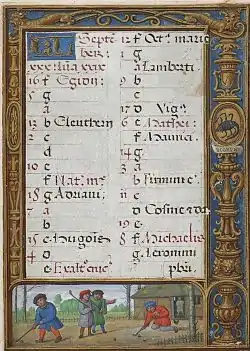 Septē
ber:
xxx
16 f Egidii:
5 g
a
12 b Eleutherii
2 c
d
10 e
f Nat. m̄.
18 g Adriani:
7 a
b
15 c Hugōis
4 d
e Exalt.
12 f Oct. marie
1 g
a Lamberti.
9 b
c
17 d Vig.
6 e Mathei:
f Maurici:
14 g
3 a
b Firmini
c
d Cosme
19 e
8 f Michaelis
g Ieronimi
pbri